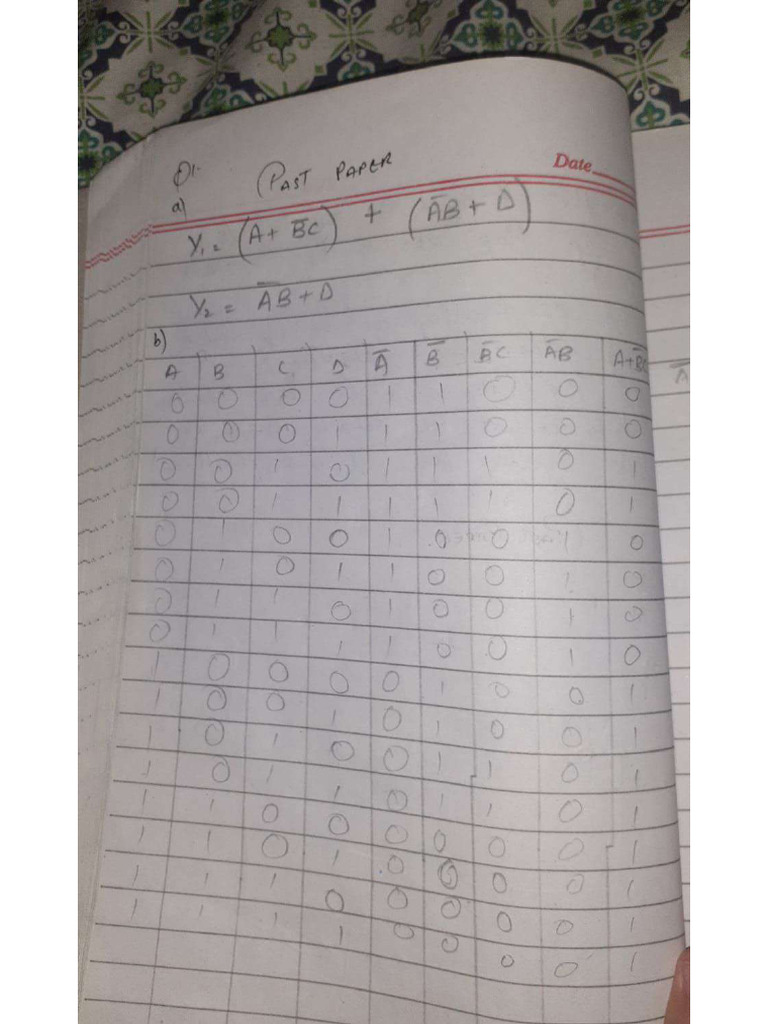 Q1. PAST PAPER Date
a)
Y₁ = (A + B̅C) + (A̅B + D)
Y₂ = A̅B + D
b)
A B C D A̅ B̅ B̅C A̅B A+B̅C A̅
0 0 0 0 1 1 0 0 0
0 0 0 1 1 1 0 0 0
0 0 1 0 1 1 1 0 1
0 0 1 1 1 1 1 0 1
0 1 0 0 1 0 0 1 0
0 1 0 1 1 0 0 1 0
0 1 1 0 1 0 0 1 0
0 1 1 1 1 0 0 1 0
1 0 0 0 0 1 0 0 1
1 0 0 1 0 1 0 0 1
1 0 1 0 0 1 1 0 1
1 0 1 1 0 1 1 0 1
1 1 0 0 0 0 0 0 1
1 1 0 1 0 0 0 0 1
1 1 1 0 0 0 0 0 1
1 1 1 1 0 0 0 0 1